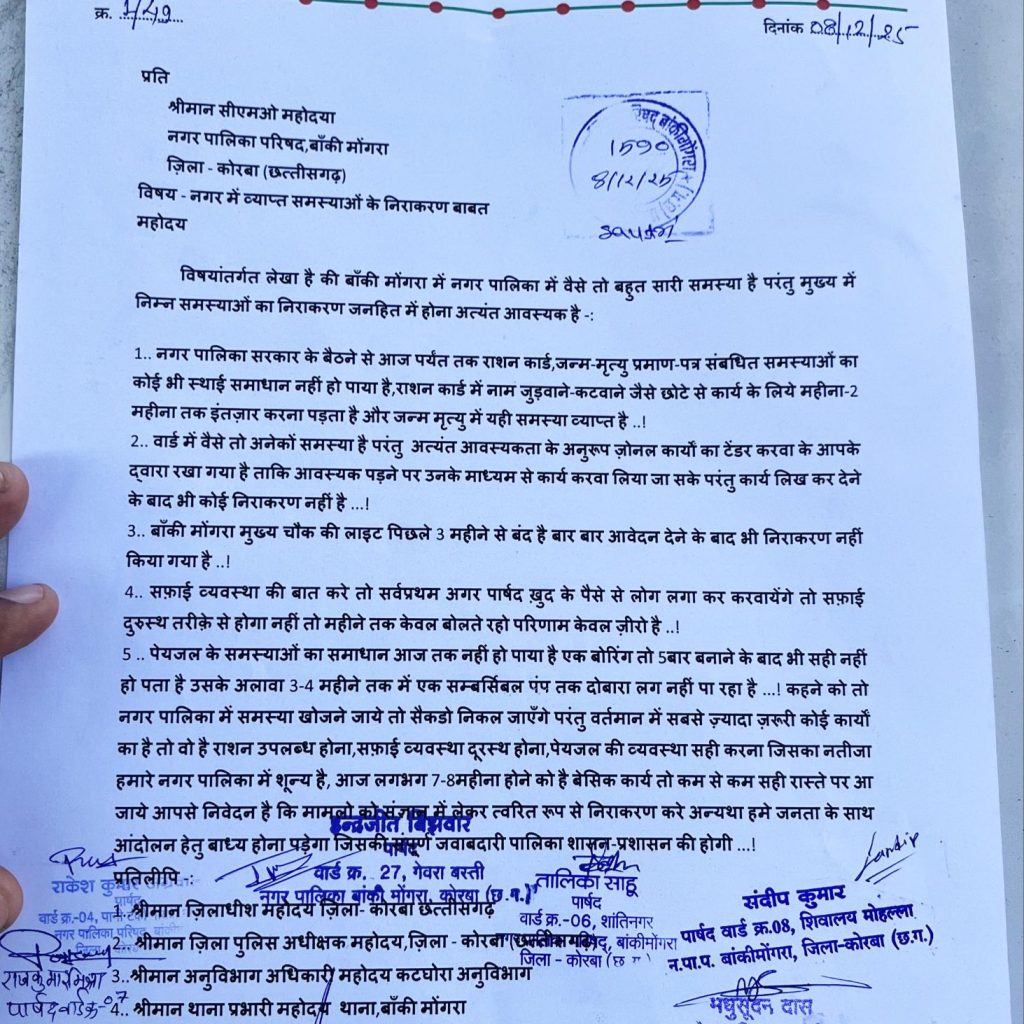 क्र. 1/49
दिनांक 08/12/25
प्रति
श्रीमान सीएमओ महोदया
नगर पालिका परिषद,बाँकी मोंगरा
ज़िला - कोरबा (छत्तीसगढ़)
विषय - नगर में व्याप्त समस्याओं के निराकरण बाबत
महोदय
बांकीमोंगरा
1590
8/12/25
विषयांतर्गत लेखा है की बाँकी मोंगरा में नगर पालिका में वैसे तो बहुत सारी समस्या है परंतु मुख्य में
निम्न समस्याओं का निराकरण जनहित में होना अत्यंत आवस्यक है -:
1.. नगर पालिका सरकार के बैठने से आज पर्यंत तक राशन कार्ड,जन्म-मृत्यु प्रमाण-पत्र संबधित समस्याओं का
कोई भी स्थाई समाधान नहीं हो पाया है,राशन कार्ड में नाम जुड़वाने-कटवाने जैसे छोटे से कार्य के लिये महीना-2
महीना तक इंतज़ार करना पड़ता है और जन्म मृत्यु में यही समस्या व्याप्त है ..!
2.. वार्ड में वैसे तो अनेकों समस्या है परंतु अत्यंत आवस्यकता के अनुरूप ज़ोनल कार्यो का टेंडर करवा के आपके
द्वारा रखा गया है ताकि आवस्यक पड़ने पर उनके माध्यम से कार्य करवा लिया जा सके परंतु कार्य लिख कर देने
के बाद भी कोई निराकरण नहीं है ...!
3.. बाँकी मोंगरा मुख्य चौक की लाइट पिछले 3 महीने से बंद है बार बार आवेदन देने के बाद भी निराकरण नहीं
किया गया है ..!
4.. सफ़ाई व्यवस्था की बात करे तो सर्वप्रथम अगर पार्षद ख़ुद के पैसे से लोग लगा कर करवायेंगे तो सफ़ाई
दुरुस्थ तरीक़े से होगा नहीं तो महीने तक केवल बोलते रहो परिणाम केवल ज़ीरो है ..!
5 .. पेयजल के समस्याओं का समाधान आज तक नहीं हो पाया है एक बोरिंग तो 5बार बनाने के बाद भी सही नहीं
हो पता है उसके अलावा 3-4 महीने तक में एक सम्बर्सिबल पंप तक दोबारा लग नहीं पा रहा है ...! कहने को तो
नगर पालिका में समस्या खोजने जाये तो सैकडो निकल जाएँगे परंतु वर्तमान में सबसे ज़्यादा ज़रूरी कोई कार्यों
का है तो वो है राशन उपलब्ध होना,सफ़ाई व्यवस्था दूरस्थ होना,पेयजल की व्यवस्था सही करना जिसका नतीजा
हमारे नगर पालिका में शून्य है, आज लगभग 7-8महीना होने को है बेसिक कार्य तो कम से कम सही रास्ते पर आ
जाये आपसे निवेदन है कि मामलो को संज्ञान में लेकर त्वरित रूप से निराकरण करे अन्यथा हमे जनता के साथ
आंदोलन हेतु बाध्य होना पड़ेगा जिसकी संपूर्ण जवाबदारी पालिका शासन-प्रशासन की होगी ...!
इन्द्रजीत बिंझवार
पार्षद
वार्ड क्र. 27, गेवरा बस्ती
नगर पालिका बांकी मोंगरा, कोरबा (छ.ग.)
राकेश कुमार
पार्षद
वार्ड क्र.-04,
तालिका साहू
पार्षद
वार्ड क्र.-06, शांतिनगर
बांकीमोंगरा
जिला - कोरबा (छ ग )
संदीप कुमार
पार्षद वार्ड क्र.08, शिवालय मोहल्ला
न.पा.प. बांकीमोंगरा, जिला-कोरबा (छ.ग.)
प्रतिलीप -:
1. श्रीमान ज़िलाधीश महोदय ज़िला- कोरबा छत्तीसगढ़
2.. श्रीमान ज़िला पुलिस अधीक्षक महोदय,ज़िला - कोरबा (छत्तीसगढ़)
3..श्रीमान अनुविभाग अधिकारी महोदय कटघोरा अनुविभाग
4.. श्रीमान थाना प्रभारी महोदय थाना,बाँकी मोंगरा
राजकुमार मिश्रा
पार्षद वार्ड क्र-07
मधुसूदन दास